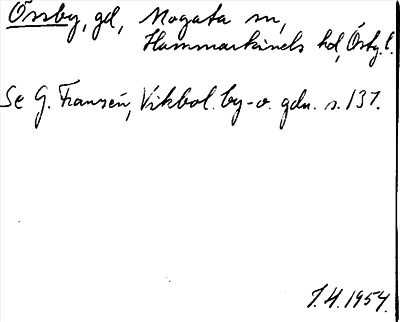 Örsby, gd, Mogata sn,
Hammarkinds hd, Östg. l.
Se G. Franzén, Vikbol. by- o. gdn. s. 137.
1.4.1954.